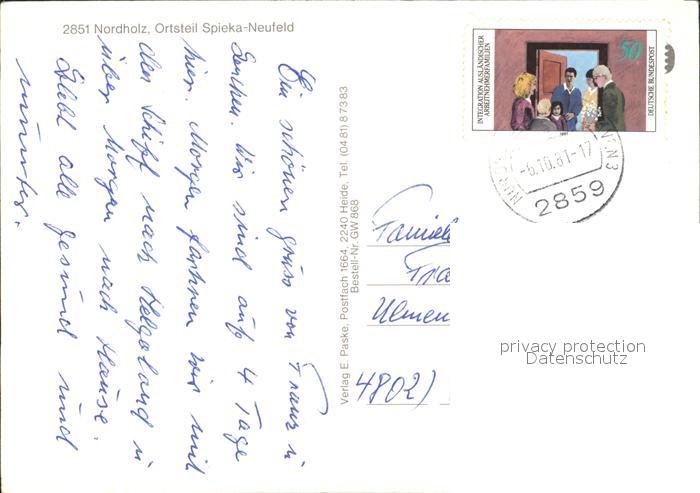 2851 Nordholz, Ortsteil Spieka-Neufeld
Ein schönen Gruss von Franz u
Gerchen. Wir sind auf 4 Tage
hier. Morgen fahren wir mit
der Schiff nach Helgoland u
über Morgen nach Hause.
Bleibt alle gesund und
munter.
Verlag E. Paske, Postfach 1664, 2240 Heide, Tel. (04 81) 8 73 83
Bestell-Nr. GW 868
INTEGRATION AUSLÄNDISCHER
ARBEITNEHMERFAMILIEN
50
DEUTSCHE BUNDESPOST
1981
-6.10.81-17
2859
Familie
Fra
Ulmen
4802)
privacy protection
Datenschutz